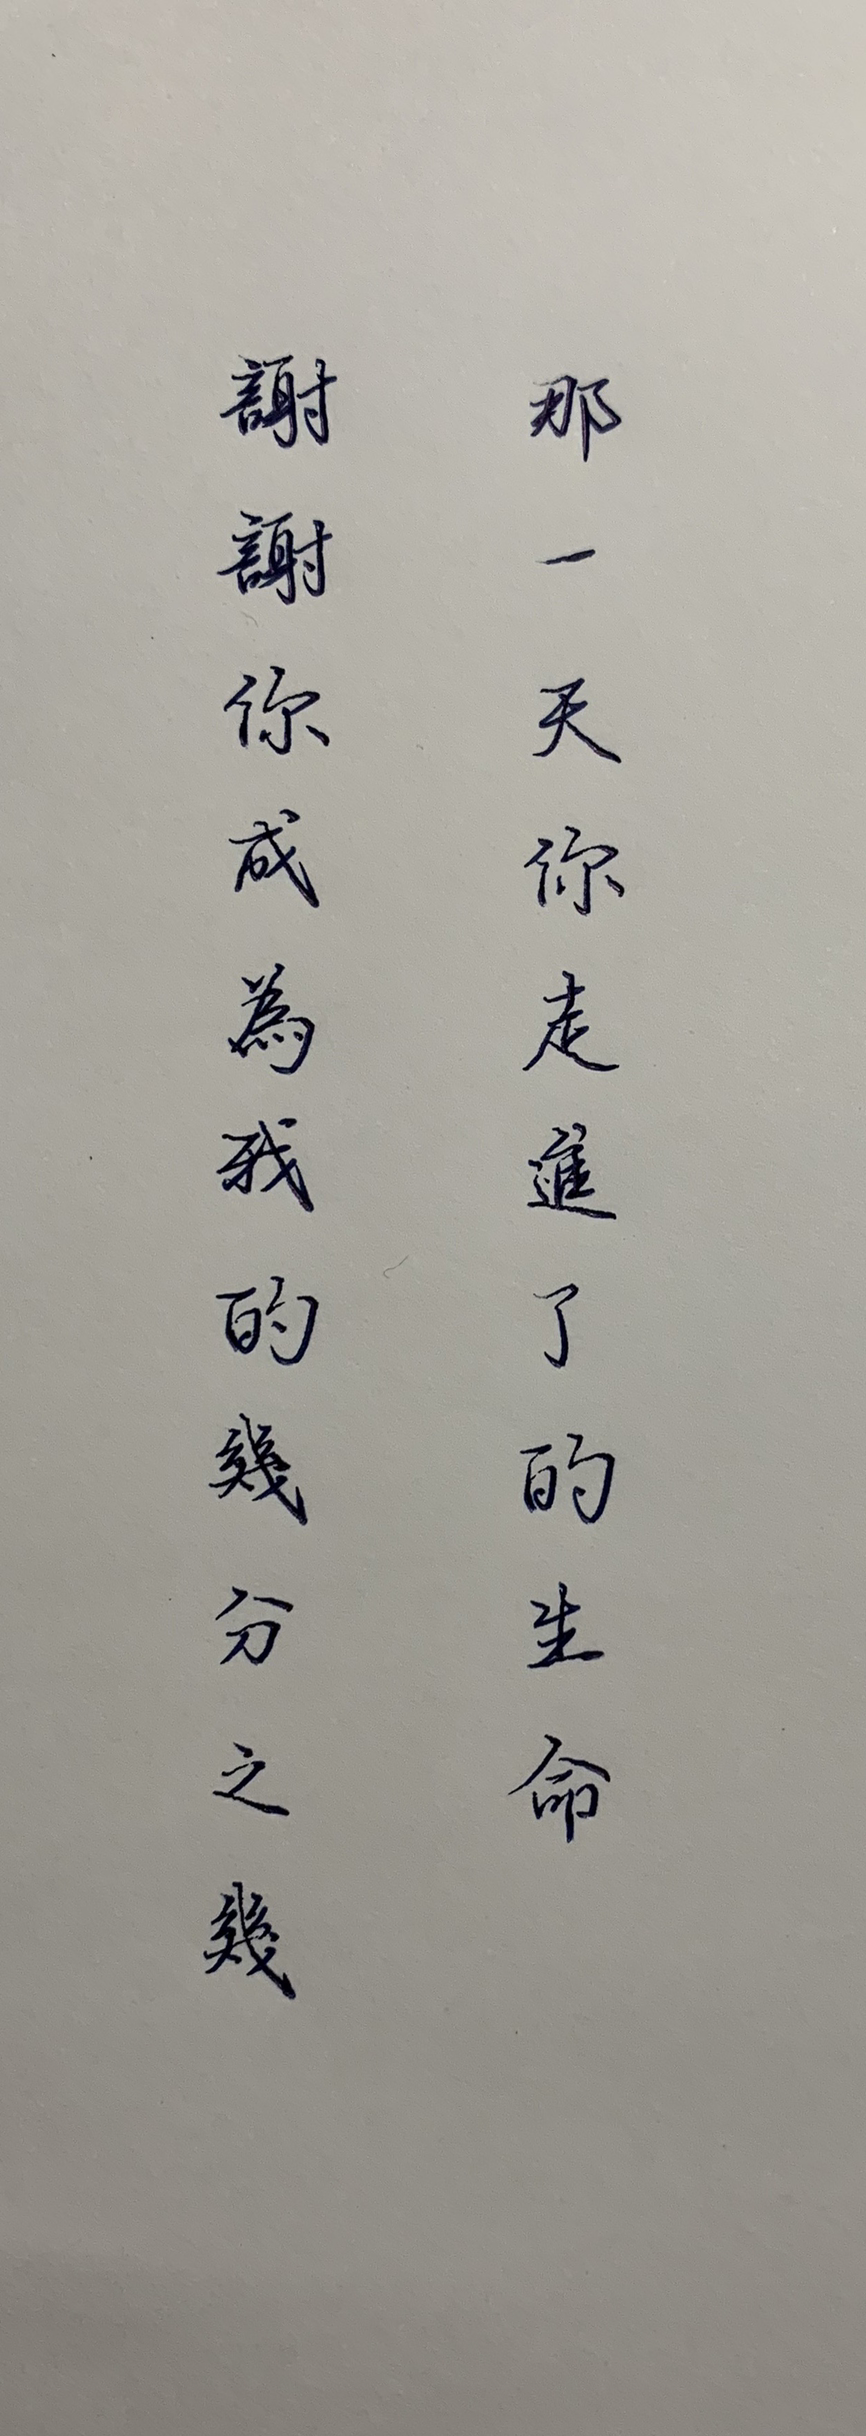 那一天你走進了的生命
謝謝你成為我的幾分之幾